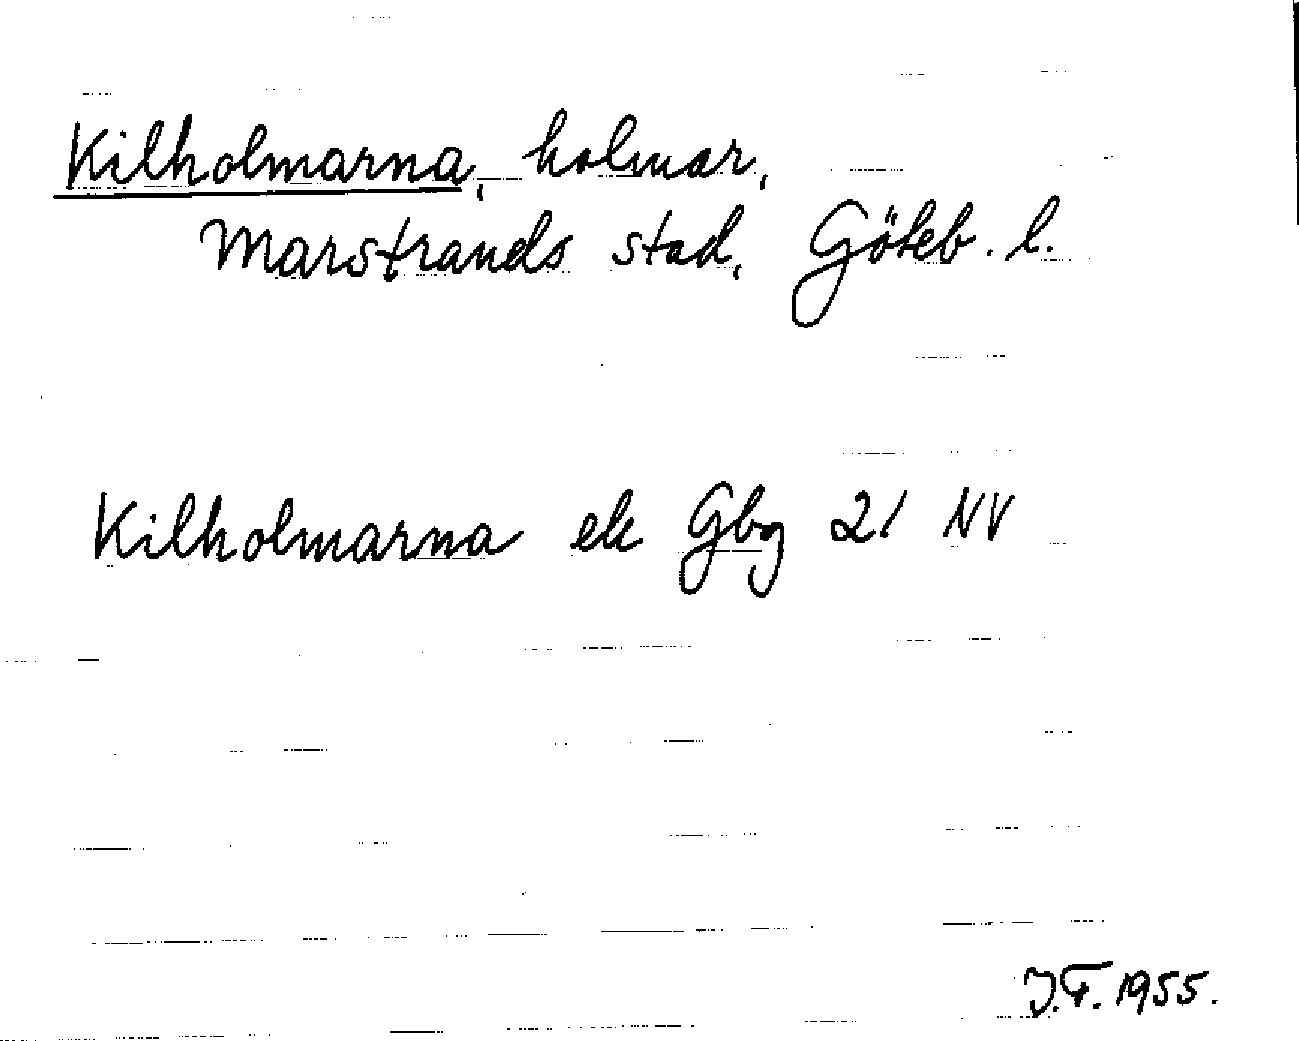 Kilholmarna, holmar,
Marstrands stad, Göteb. l.
Kilholmarna ek Gbg 21 NV
J.F. 1955.